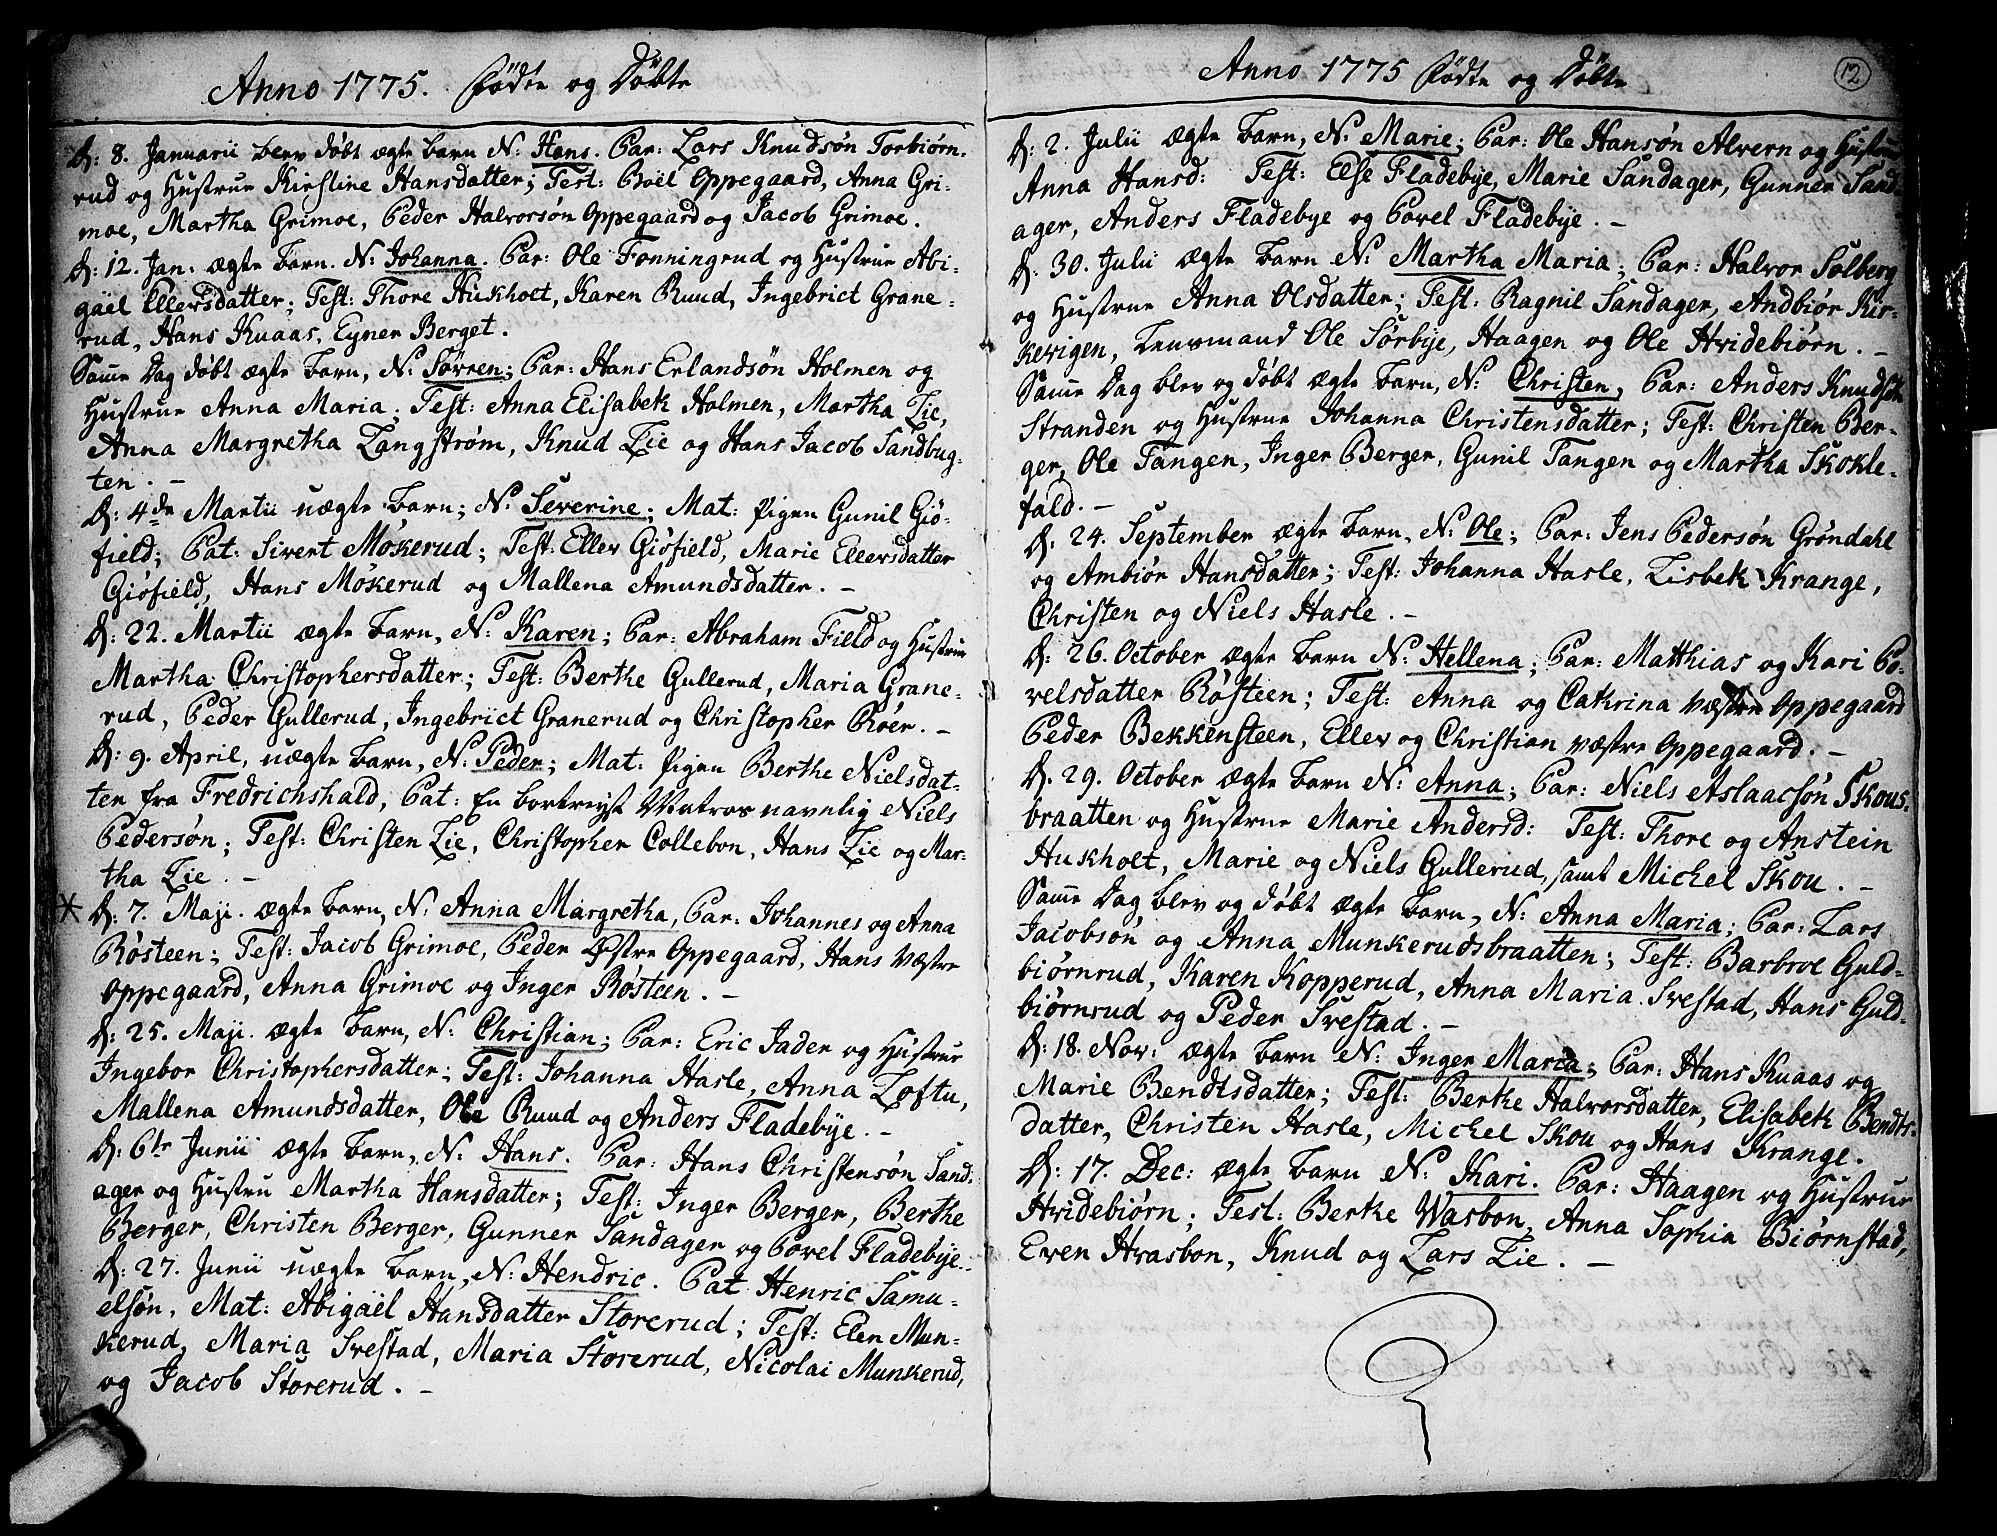 Anno 1775. Fødte og Døbte
D: 8. Januarii blev døbt ægte barn N: Hans. Par: Lars Knudsøn Torbiørn-
rud og Hustrue Kirstine Hansdatter; Test: Boël Oppegaard, Anna Gri-
moe, Martha Grimoe, Peder Halvorsøn Oppegaard og Jacob Grimoe.
D: 12. Jan: ægte barn. N: Johanna. Par: Ole Fonningrud og Hustrue Abi-
gaël Ellevsdatter; Test: Thore Hukholt, Karen Ruud, Ingebrict Grane-
rud, Hans Kuaas, Eyner Berget.
Samme Dag døbt ægte barn, N: Sørren; Par: Hans Erlandsøn Holmen og
Hustrue Anna Maria; Test: Anna Elisabeth Holmen, Martha Lie,
Anna Margretha Langstrøm, Knud Lie og Hans Jacob Sandbug-
ten. -
D: 4de Martii uægte barn; N: Severine; Mat: Pigen Gunil Giø-
field; Pat: Sivert Møkerud; Test: Ellev Giøfield, Marie Ellevsdatter
Giøfield, Hans Møkerud og Mallena Amundsdatter. -
D: 22. Martii ægte barn, N: Karen; Par: Abraham Field og Hustrue
Martha Christophersdatter; Test: Berthe Gullerud, Maria Grane-
rud, Peder Gullerud, Ingebrict Granerud og Christopher Roër. -
D: 9. April, uægte barn, N: Peder; Mat: Pigen Berthe Nielsdat-
ter fra Fredrichshald, Pat: En bortreyst Matros navnlig Niels
Pedersøn; Test: Christen Lie, Christopher Collebon, Hans Lie og Mar-
tha Lie. -
* D: 7. Maji. ægte barn, N: Anna Margretha, Par: Johannes og Anna
Røsteen; Test: Jacob Grimoe, Peder Østre Oppegaard, Hans væstre
Oppegaard, Anna Grimoe og Inger Røsteen. -
D: 25. Maji. ægte barn, N: Christian; Par: Eric Jader og Hustrue
Ingebor Christophersdatter; Test: Johanna Hasle, Anna Loftu,
Mallena Amundsdatter, Ole Ruud og Anders Fladebye. -
D: 6te Junii ægte barn, N: Hans. Par: Hans Christensøn Sand-
ager og Hustru Martha Hansdatter; Test: Inger Berger, Berthe
Berger, Christen Berger, Gunner Sandager og Povel Fladebye. -
D: 27. Junii uægte barn, N: Hendric. Pat Henric Samu-
elsøn, Mat: Abigaël Hansdatter Storerud; Test: Elen Mun-
kerud, Maria Svestad, Maria Storerud, Nicolai Munkerud,
og Jacob Storerud. -
Anno 1775 Fødte og Døbte
12
D: 2. Julii ægte barn, N: Marie; Par: Ole Hansøn Alvern og Hustrue
Anna Hansd: Test: Else Fladebye, Marie Sandager, Gunner Sand-
ager, Anders Fladebye og Povel Fladebye. -
D. 30. Julii ægte barn N: Martha Maria; Par: Halvor Solberg
og Hustrue Anna Olsdatter; Test: Ragnil Sandager, Andbiør Kir-
kevigen, Lensmand Ole Sørbye, Haagen og Ole Hvidebiørn. -
Samme Dag blev og døbt ægte barn, N: Christen, Par: Anders Knudsøn
Stranden og Hustrue Johanna Christensdatter; Test: Christen Ber-
ger, Ole Tangen, Inger Berger, Gunil Tangen og Martha Skokle-
fald. -
D: 24. September ægte barn, N: Ole; Par: Jens Pedersøn Grøndahl
og Ambiør Hansdatter; Test: Johanna Hasle, Lisbeth Krange,
Christen og Niels Hasle. -
D: 26. October ægte barn N: Hellena; Par: Matthias og Kari Po-
velsdatter Røsteen; Test: Anna og Cathrina væstre Oppegaard
Peder Bekkensteen, Ellev og Christian væstre Oppegaard. -
D. 29. October ægte barn N: Anna; Par: Niels Aslacsøn Skous-
braatten og Hustrue Marie Andersd: Test: Thore og Anstein
Hukholt, Marie og Niels Gullerud, samt Michel Skou. -
Samme Dag blev og døbt ægte barn, N: Anna Maria; Par: Lars
Jacobsøn og Anna Munkerudsbraatten; Test: Barbroe Guld-
biørnrud, Karen Kopperud, Anna Maria Svestad, Hans Guld-
biørnrud og Peder Svestad. -
D: 18. Nov: ægte barn N: Inger Maria; Par: Hans Kuaas og
Marie Bendtsdatter; Test: Berthe Halvorsdatter, Elisabeth Bendts-
datter, Christen Hasle, Michel Skou og Hans Krange.
D: 17. Dec: ægte barn N: Kari. Par: Haagen og Hustrue
Hvidebiørn; Test: Berthe Wasbon, Anna Sophia Biørnstad,
Even Hvasbon, Knud og Lars Lie. -